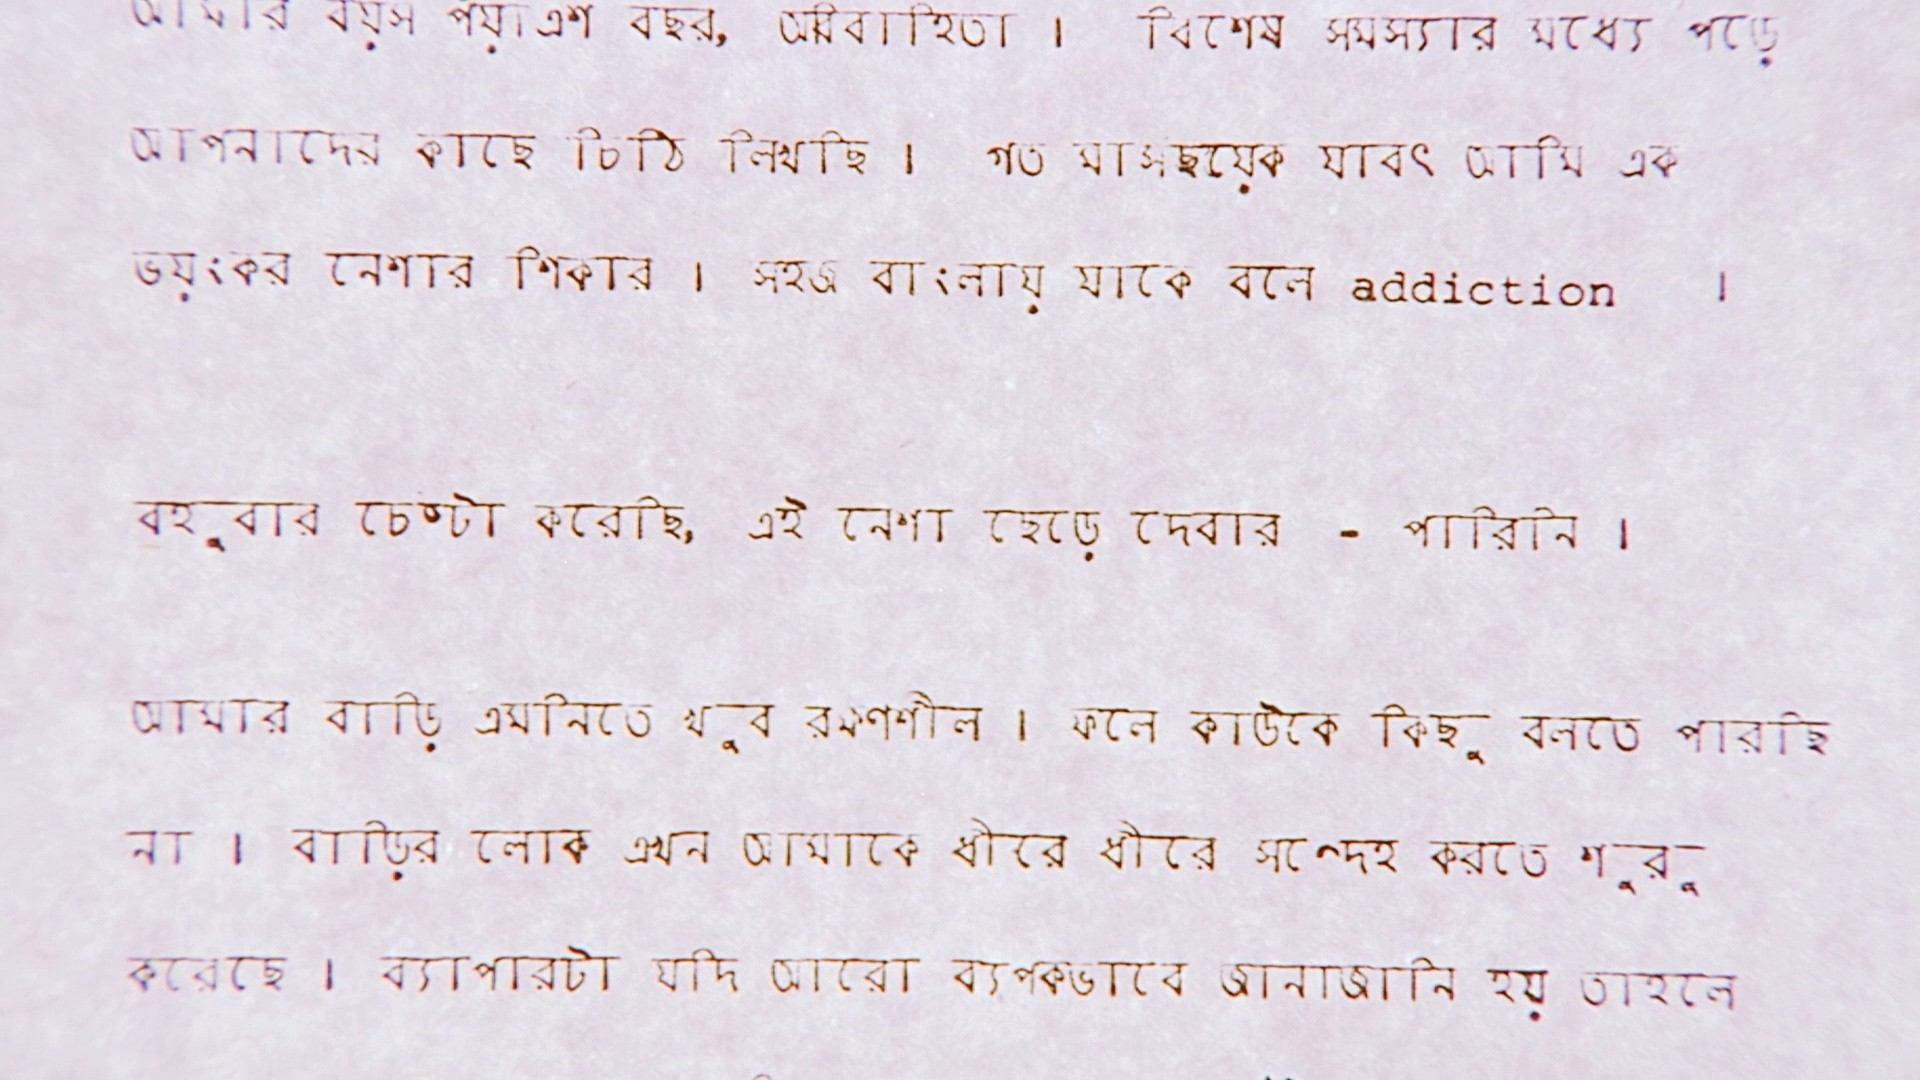 আমার বয়স পঁয়ত্রিশ বছর, অবিবাহিতা । বিশেষ সমস্যার মধ্যে পড়ে
আপনাদের কাছে চিঠি লিখছি । গত মাসছয়েক যাবৎ আমি এক
ভয়ংকর নেশার শিকার । সহজ বাংলায় যাকে বলে addiction ।
বহুবার চেষ্টা করেছি, এই নেশা ছেড়ে দেবার - পারিনি ।
আমার বাড়ি এমনিতে খুব রক্ষণশীল । ফলে কাউকে কিছু বলতে পারছি
না । বাড়ির লোক এখন আমাকে ধীরে ধীরে সন্দেহ করতে শুরু
করেছে । ব্যাপারটা যদি আরো ব্যপকভাবে জানাজানি হয় তাহলে